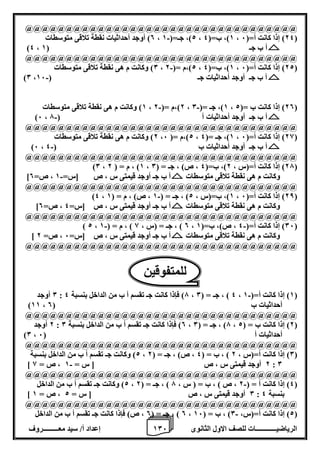 @@@@@@@@@@@@@@@@@@@@@@@@@@@@@@@@@@@@
(٢٤) إذا كانت أ=(٠ ، ١)، ب=(٤ ، ٥)، جـ=(-١ ، ٦) أوجد أحداثيات نقطة تلاقى متوسطات
△ أ ب جـ (١ ، ٤)
@@@@@@@@@@@@@@@@@@@@@@@@@@@@@@@@@@@@
(٢٥) إذا كانت أ=(٠ ، ١)، ب=(٤ ، ٥)، م =(-٢ ، ٣) وكانت م هى نقطة تلاقى متوسطات
△ أ ب جـ أوجد أحداثيات جـ (-١٠، ٣)
@@@@@@@@@@@@@@@@@@@@@@@@@@@@@@@@@@@@
(٢٦) إذا كانت ب =(٥ ، ١)، جـ =(-٣ ، ٢)، م =(-٢ ، ١) وكانت م هى نقطة تلاقى متوسطات
△ أ ب جـ أوجد أحداثيات أ (-٨ ، ٠)
@@@@@@@@@@@@@@@@@@@@@@@@@@@@@@@@@@@@
(٢٧) إذا كانت أ=(٠ ، ١)، جـ =(٤ ، ٥)، م =(٠ ، ٢) وكانت م هى نقطة تلاقى متوسطات
△ أ ب جـ أوجد أحداثيات ب (-٤ ، ٠)
@@@@@@@@@@@@@@@@@@@@@@@@@@@@@@@@@@@@
(٢٨) إذا كانت أ=(س ، ٢)، ب=(٤ ، ص) ، جـ = (٣ ، ١) ، م = (٢ ، ٣)
وكانت م هى نقطة تلاقى متوسطات △ أ ب جـ أوجد قيمتى س ، ص [س=-١ ، ص=٦]
@@@@@@@@@@@@@@@@@@@@@@@@@@@@@@@@@@@@
(٢٩) إذا كانت أ=(٠ ، ١)، ب=(س ، ٥) ، جـ = (-١ ، ص) ، م = (١ ، ٤)
وكانت م هى نقطة تلاقى متوسطات △ أ ب جـ أوجد قيمتى س ، ص [س=٤ ، ص=٦]
@@@@@@@@@@@@@@@@@@@@@@@@@@@@@@@@@@@@
(٣٠) إذا كانت أ=(-٤ ، ص)، ب=(١ ، ٦) ، جـ = (س ، ٧) ، م = (-١ ، ٥)
وكانت م هى نقطة تلاقى متوسطات △ أ ب جـ أوجد قيمتى س ، ص [س=٠ ، ص= ٢ ]
@@@@@@@@@@@@@@@@@@@@@@@@@@@@@@@@@@@@
للمتفوقين
(١) إذا كانت أ=(-١ ، ٤) ، جـ = (٣ ، ٨) فإذا كانت جـ تقسم أ ب من الداخل بنسبة ٤ : ٣ أوجد
أحداثيات ب (٦ ، ١١)
@@@@@@@@@@@@@@@@@@@@@@@@@@@@@@@@@@@@
(٢) إذا كانت ب = (٥ ، ٨) ، جـ = (٣ ، ٦) فإذا كانت جـ تقسم أ ب من الداخل بنسبة ٣ : ٢ أوجد
أحداثيات أ (٠ ، ٣)
@@@@@@@@@@@@@@@@@@@@@@@@@@@@@@@@@@@@
(٣) إذا كانت أ=(س ، ٢) ، ب = (٤ ، ص) ، جـ = (٢ ، ٥) وكانت جـ تقسم أ ب من الداخل بنسبة
٣ : ٢ أوجد قيمتى س ، ص [ س = -١ ، ص = ٧ ]
@@@@@@@@@@@@@@@@@@@@@@@@@@@@@@@@@@@@
(٤) إذا كانت أ = (-٢ ، ص) ، ب = ( س ، ٨) ، جـ = (٢ ، ٥) وكانت جـ تقسم أ ب من الداخل
بنسبة ٤ : ٣ أوجد قيمتى س ، ص [ س = ٥ ، ص = ١ ]
@@@@@@@@@@@@@@@@@@@@@@@@@@@@@@@@@@@@
(٥) إذا كانت أ=(س، -٣) ، ب = (١٠ ، ٦) ، جـ = (٦ ، ص) فإذا كانت جـ تقسم أ ب من الداخل
الرياضيـــــــــات للصف الاول الثانوى ١٣٠ إعداد أ/ سيد معـــــــروف